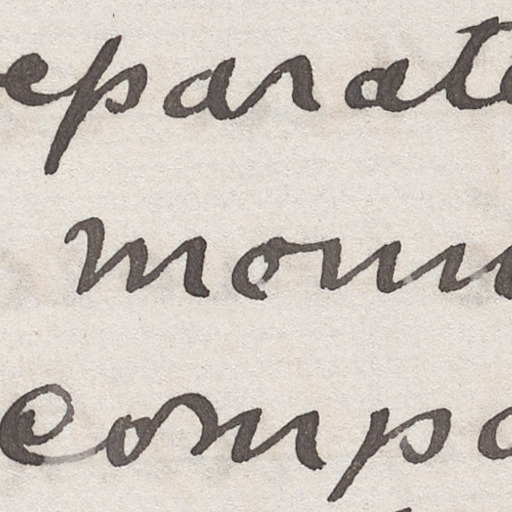 eparate
moun
compa